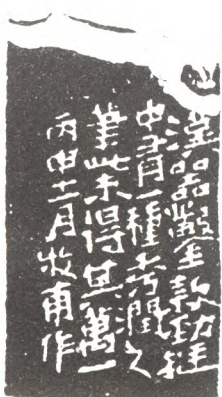 漢器鑿金款勁挺
中有一種秀潤之
筆此未得其萬一
丙申十二月牧甫作